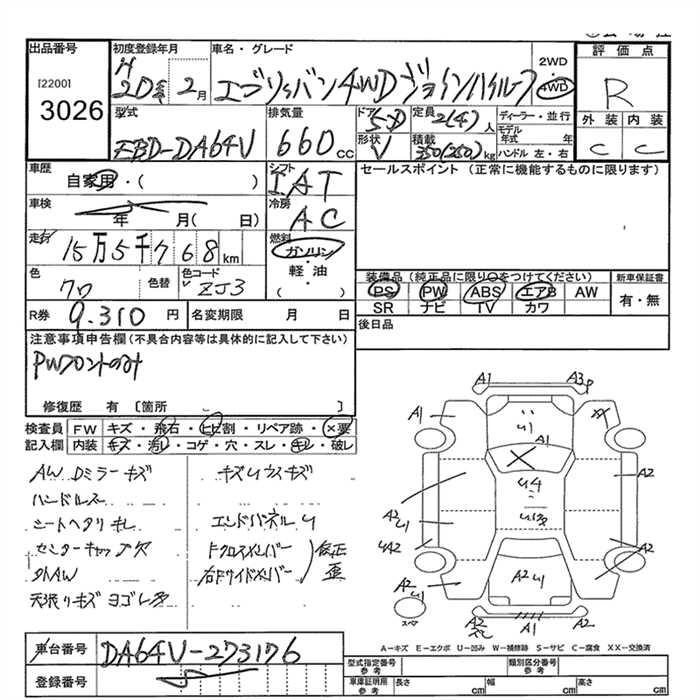 出品番号 初度登録年月 車名・グレード 2WD 4WD 評価点
[2200] H
3026 20年 2月 エブリィバン 4WD ジョインハイルーフ R
型式 排気量 ドア 5D 定員 2(4)人 ディーラー・並行 外装 内装
EBD-DA64V 660cc 形状 V 積載 350(250)kg モデル年式 年 C C
ハンドル 左・右
車歴 シフト セールスポイント (正常に機能するものに限ります)
自家用・( ) IAT
車検 冷房
年 月( 日) AC
走行 15万5千768km 燃料
ガソリン
色 色替 色コード 軽油 装備品(純正品に限り○をつけてください) 新車保証書
ZJ3 ( ) PS PW ABS エアB AW 有・無
SR ナビ TV カワ
R券 9.310円 名変期限 月 日 後日品
注意事項申告欄(不具合内容等は具体的に記入して下さい)
PWフロントのみ
修復歴 有 [箇所 ]
検査員 FW キズ・飛石・ヒビ割・リペア跡・×要
記入欄 内装 キズ・汚レ・コゲ・穴・スレ・キレ・破レ
AW Dミラーキズ キズ U ウスキズ
ハンドルスレ
シートヘタリキレ エンドパネルU
センターキャップ欠 Fクロスメンバー 修正
外AW 右Fサイドメンバー 歪
天張りキズ ヨゴレ多
A1 A3P
A1 XX
U1
A1
X
U4 A2
A2 U1
U3
UA2 A2
A2 U1 A2 U1 A2
スペア A2 A1 A1
A－キズ E－エクボ U－凹み W－補修跡 S－サビ C－腐食 XX－交換済
車台番号 DA64V-273176 型式指定番号 参考 類別区分番号 参考
登録番号 車庫証明用 参考 長さ cm 幅 cm 高さ cm